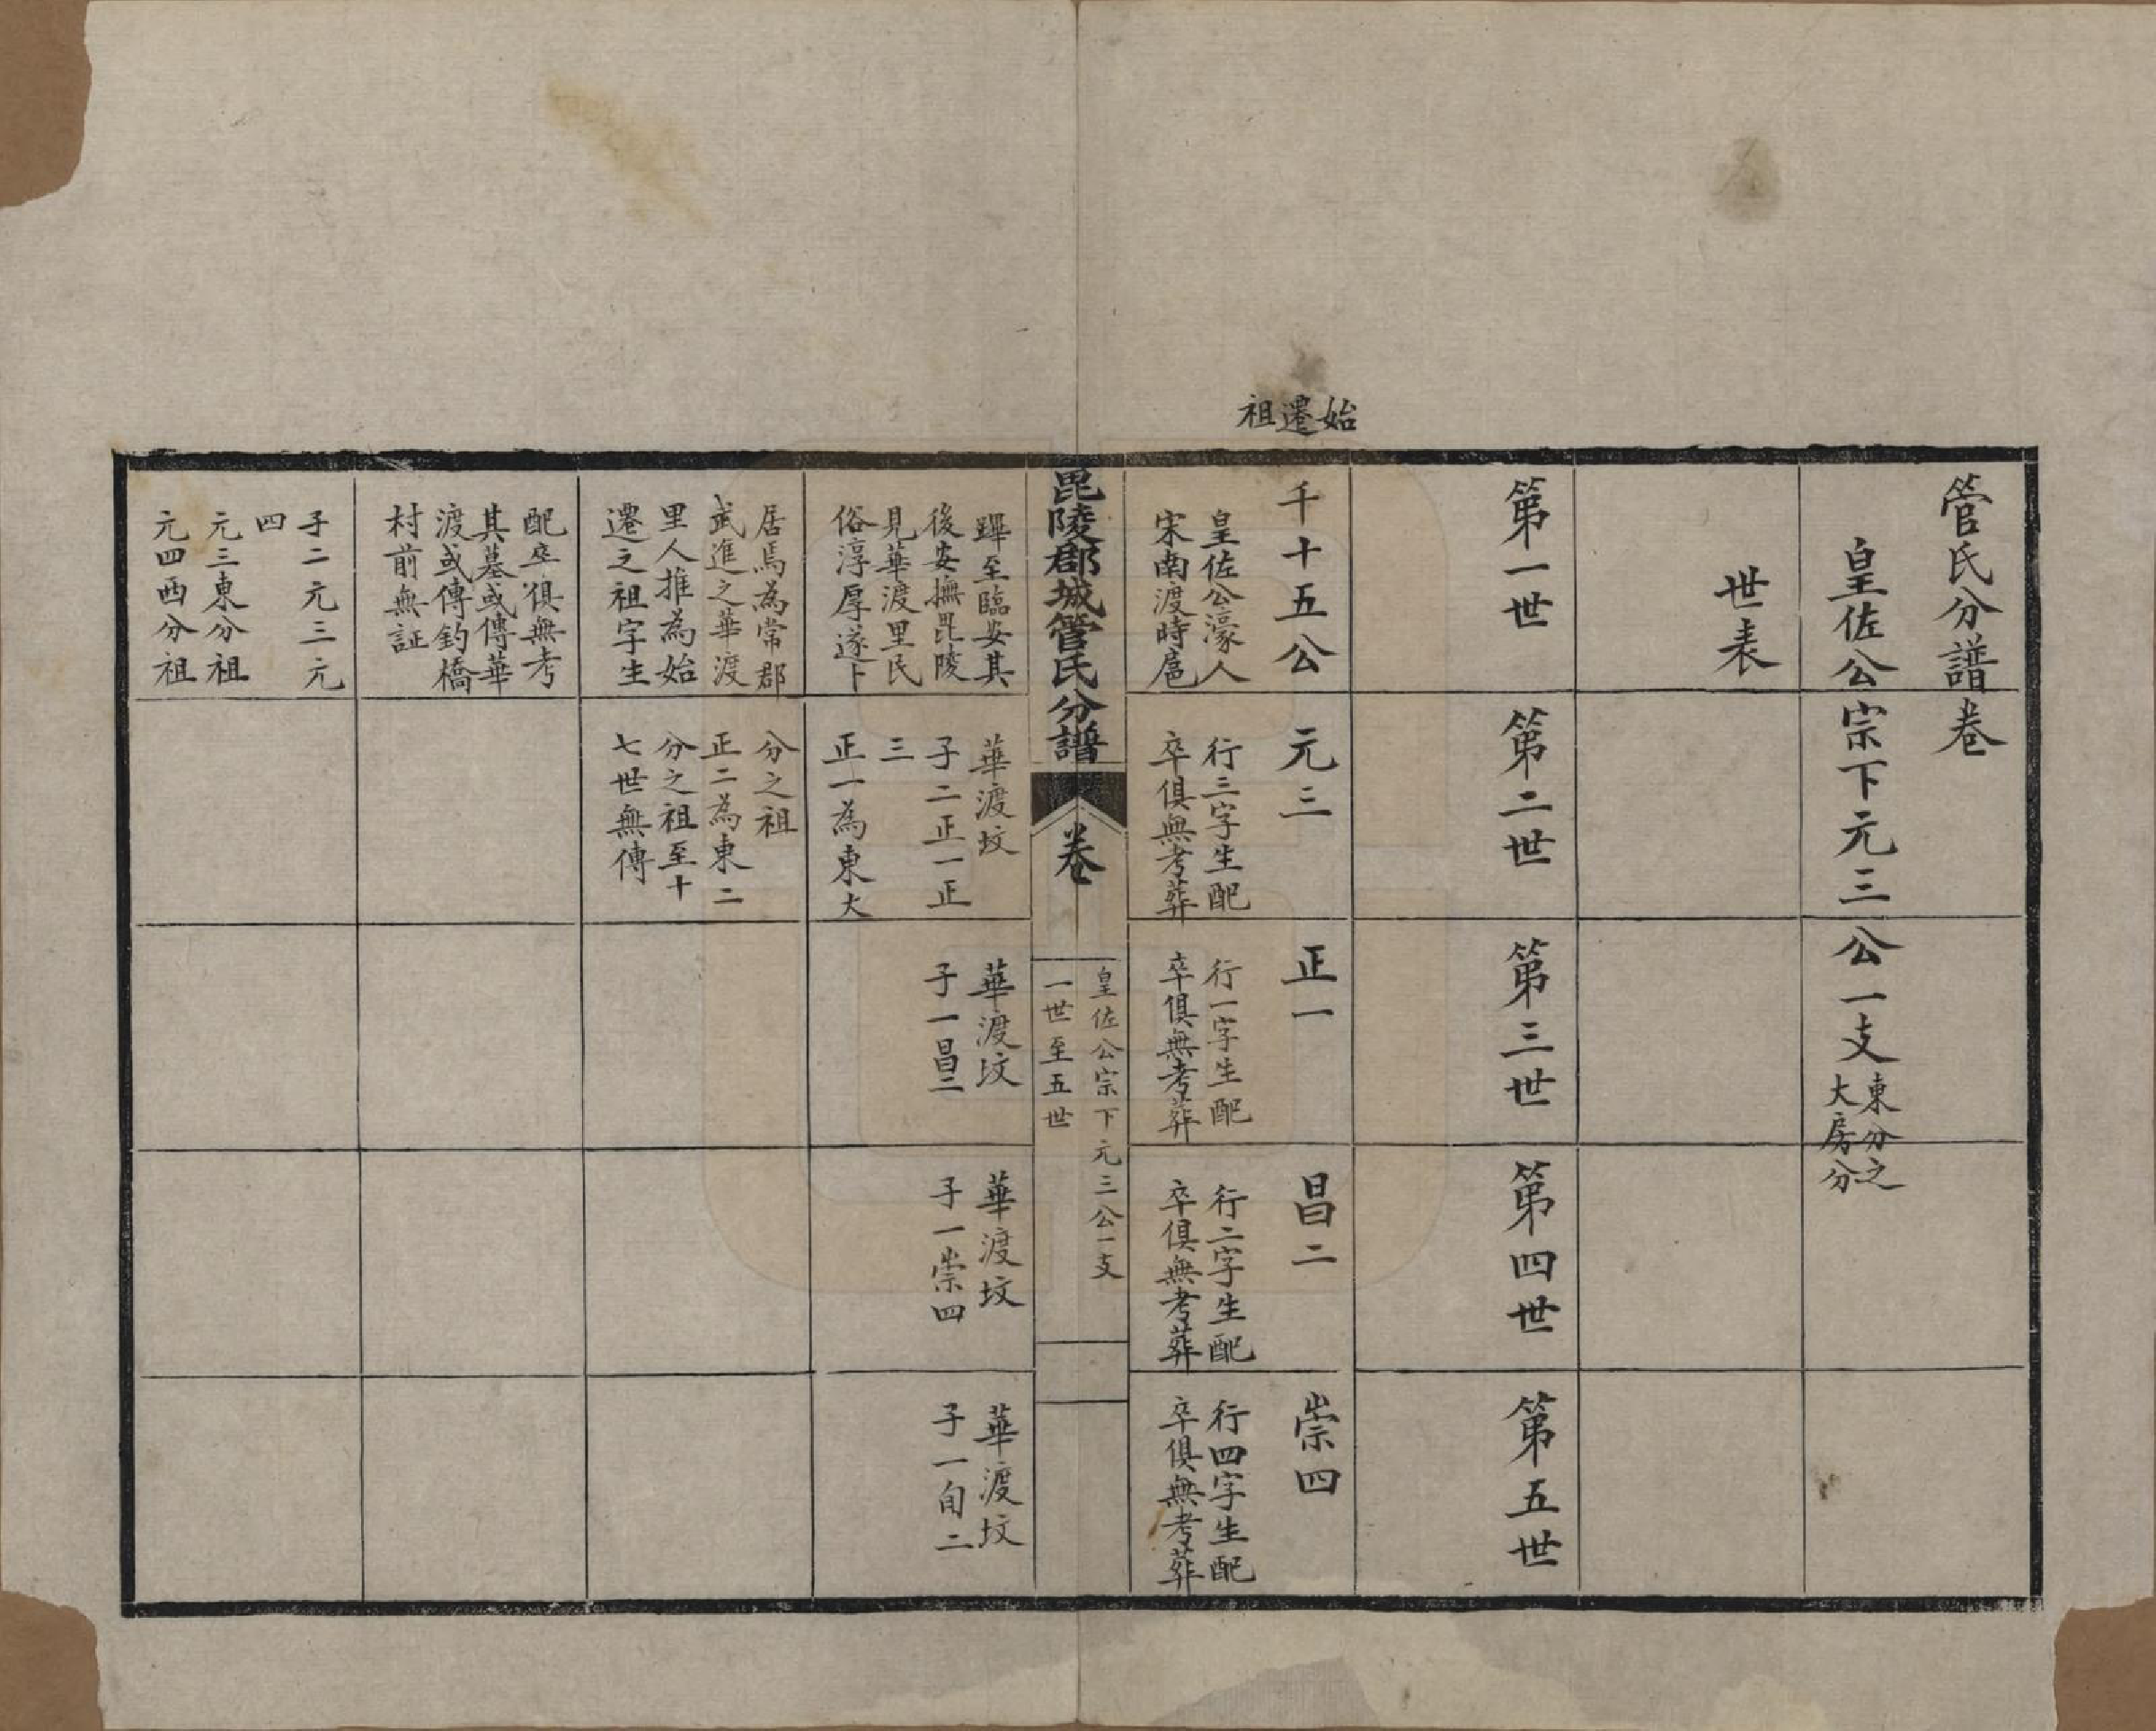 管氏分譜卷
皇佐公宗下元三公一支
東分之
大房分
世表
第一世
第二世
第三世
第四世
第五世
始遷祖
千十五公
皇佐公濠人
宋南渡時扈
蹕至臨安其
後安撫毘陵
見華渡里民
俗淳厚遂卜
居焉為常郡
武進之華渡
里人推為始
遷之祖字生
配卒俱無考
其墓或傳華
渡或傳釣橋
村前無証
子二元三元
四
元三東分祖
元四西分祖
元三
行三字生配
卒俱無考葬
華渡坟
子二正一正
三
正一為東大
分之祖
正二為東二
分之祖至十
七世無傳
正一
行一字生配
卒俱無考葬
華渡坟
子一昌二
昌二
行二字生配
卒俱無考葬
華渡坟
子一崇四
崇四
行四字生配
卒俱無考葬
華渡坟
子一旬二
毘陵郡城管氏分譜
卷
皇佐公宗下元三公一支
一世至五世